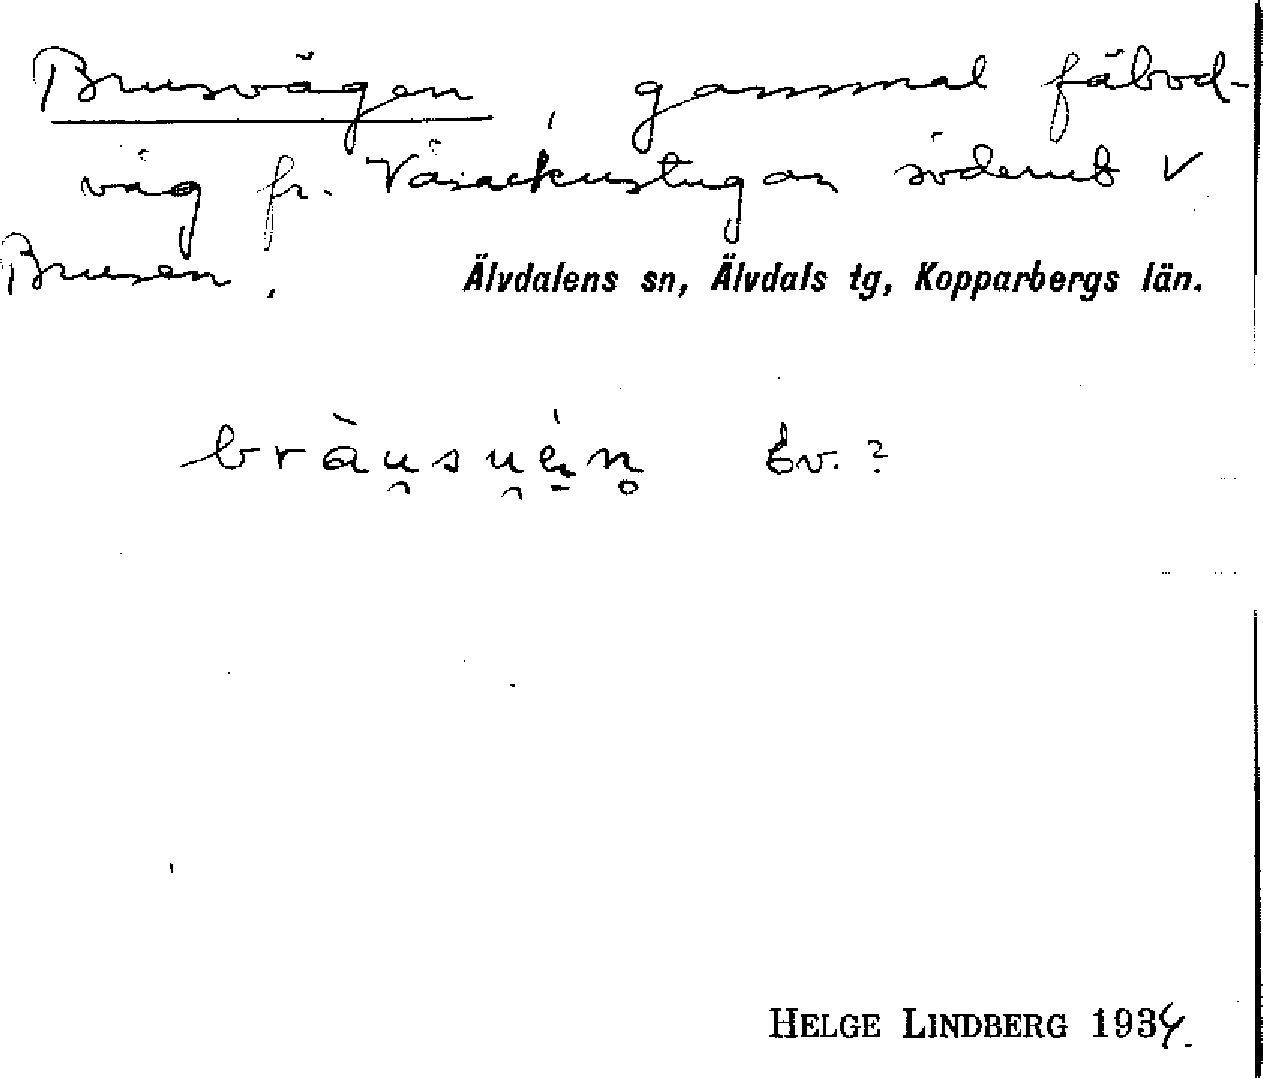 Brusvägen, gammal fäbod-
väg fr. Väsackustugan söderut v
Brusen.
Älvdalens sn, Älvdals tg, Kopparbergs län.
bràu̯su̯én̥ Ev.?
HELGE LINDBERG 1934.